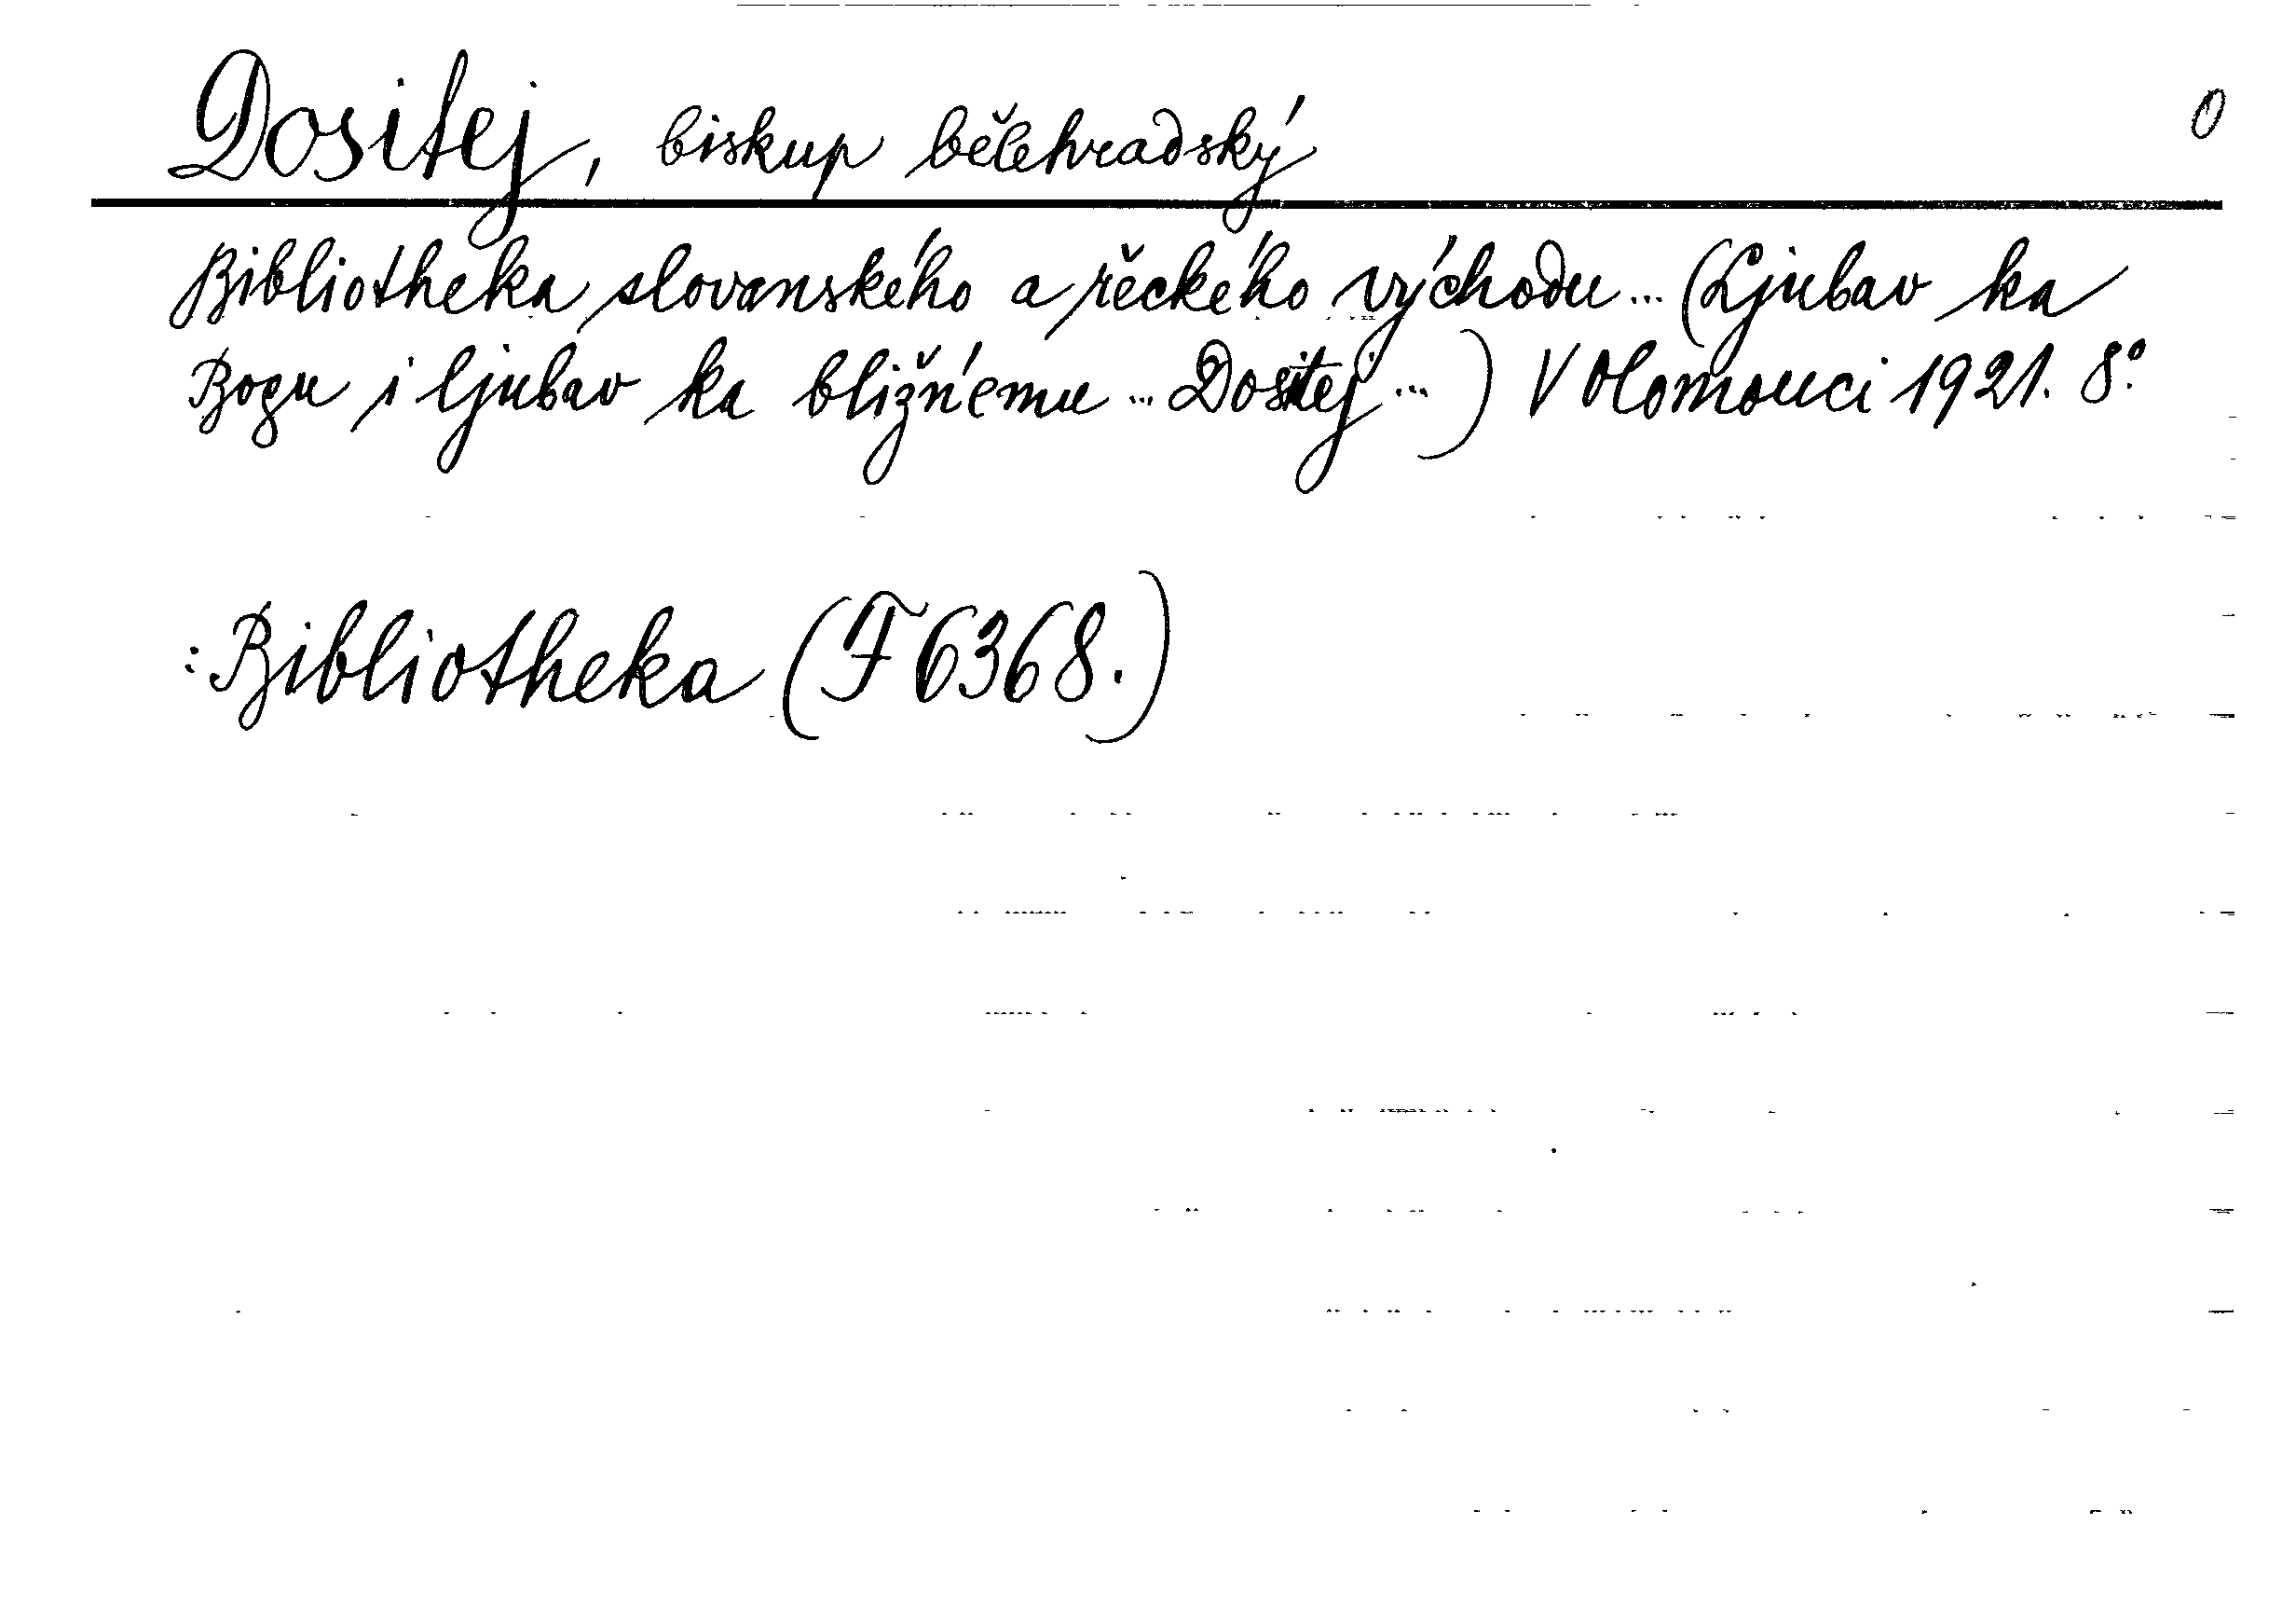 Dositej, biskup bělehradský 0
Bibliotheka slovanského a řeckého východu ... (Ljubav ka
Bogu i ljubav ka bližńemu ... Dositej ...) V Olomouci 1921. 8.°
: Bibliotheka (F 6368.)